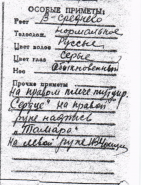 ОСОБЫЕ ПРИМЕТЫ:
Рост В-среднего
Телослож. нормальное
Цвет волос Русые
Цвет глаз серые
Нос обыкновенный
Прочие приметы
На правом плече
Сердце" на правой
руке надпись
"Тамара"
На левой руке